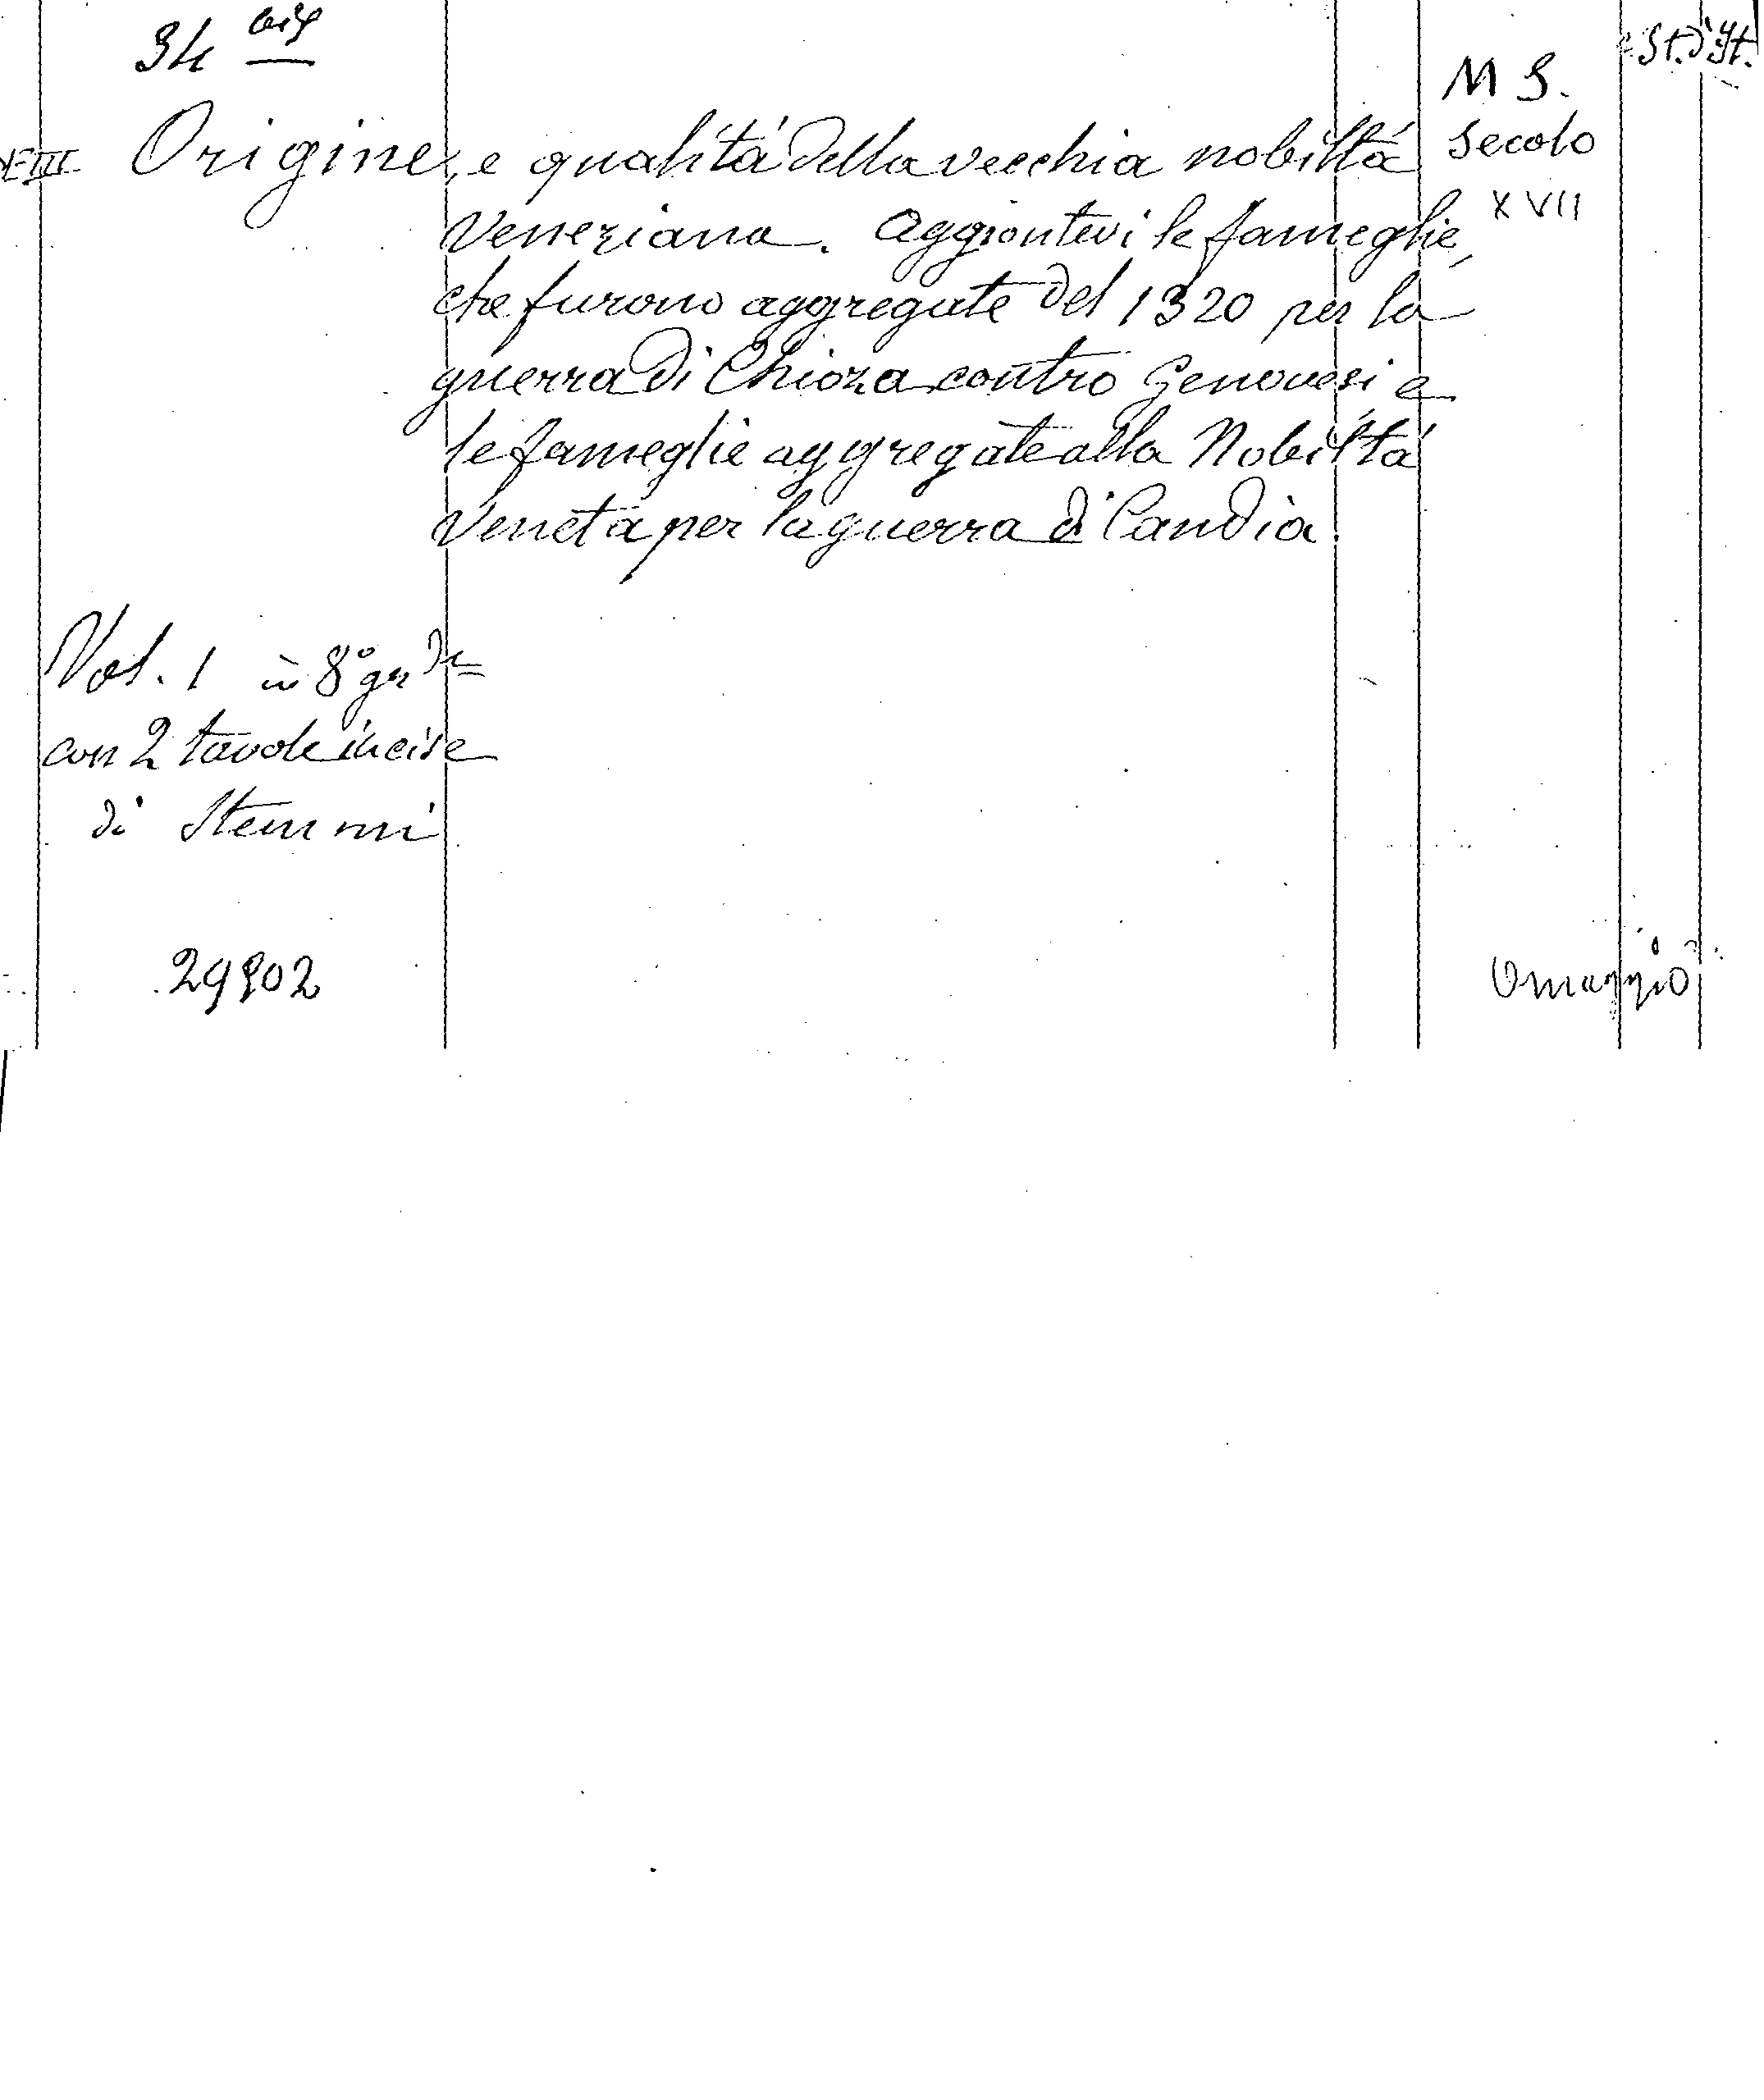 34 bis
St. d'It.
M S.
Origine, e qualità della vecchia nobiltà
secolo
XVII
Veneziana. Aggiontevi le fameglie,
che furono aggregate del 1320 per la
guerra di Chioza contro Genovesi e
le fameglie aggregate alla Nobiltà
Veneta per la guerra di Candia.
Vol. 1 in 8° gr de
con 2 tavole incise
di Stemmi
29902
Omaggio